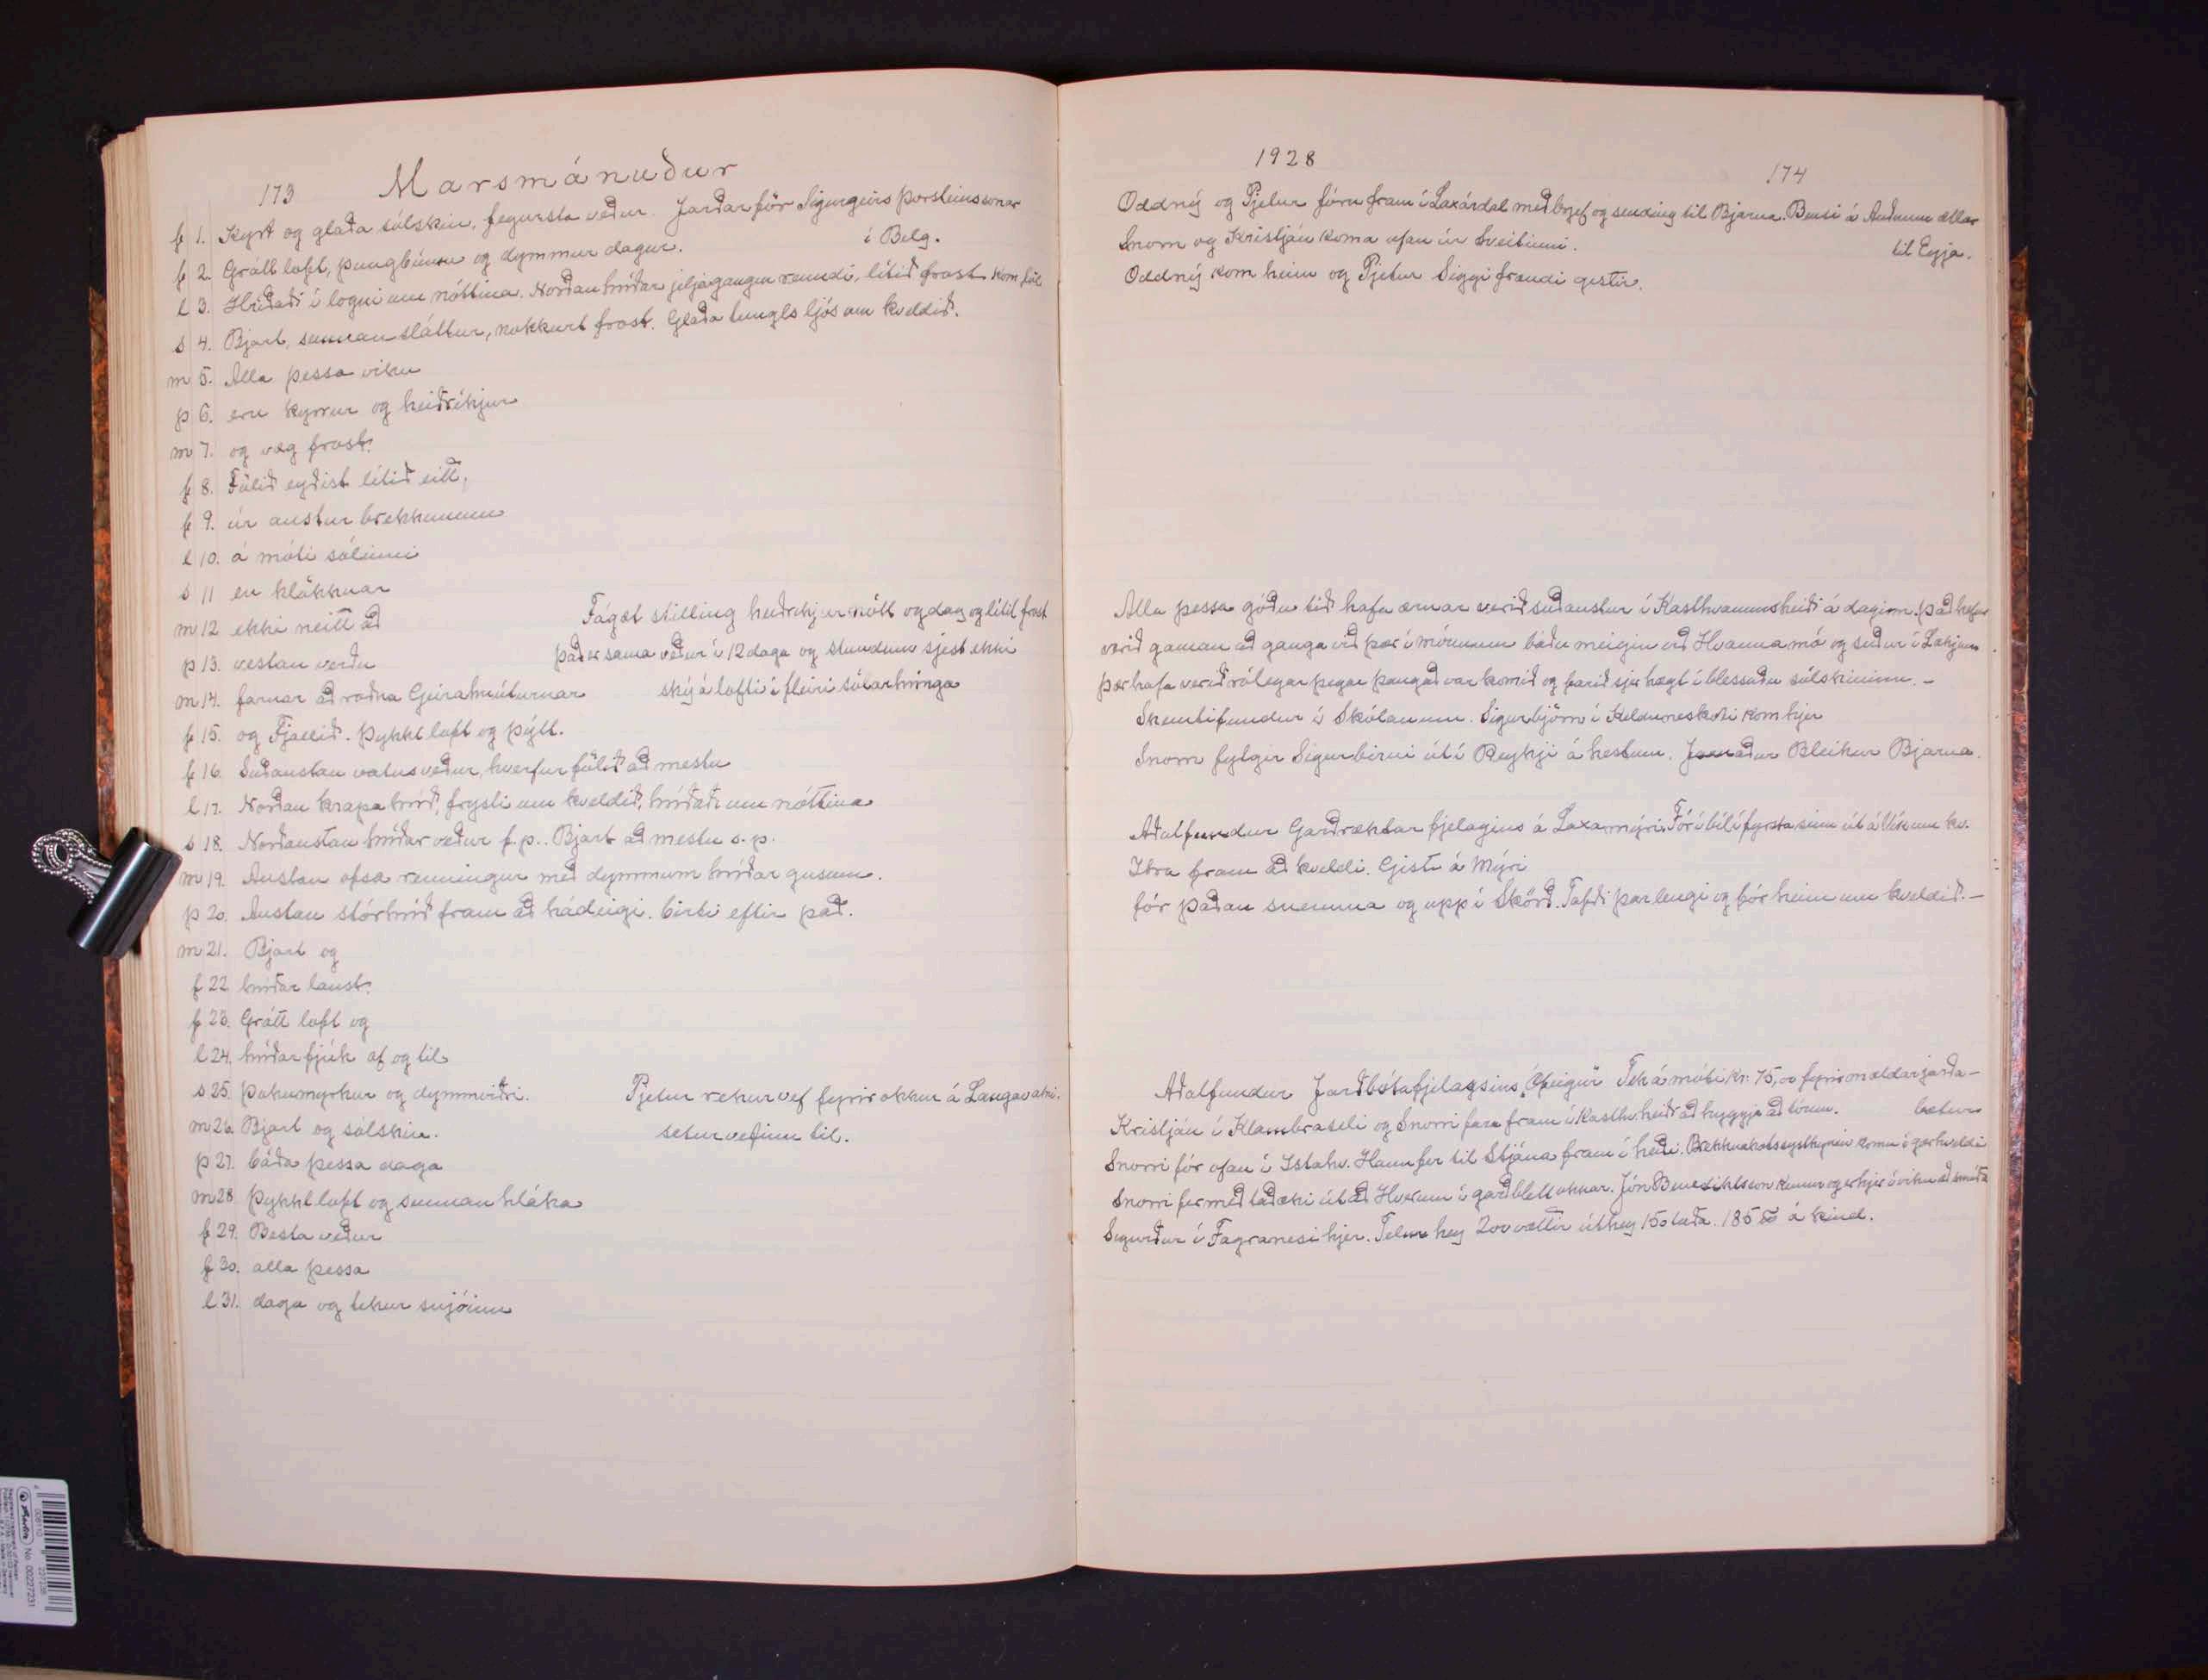 173 Marsmánuður
f 1. Kyrt og glaða sólskin, fegursta veður. Jarðarför Sigurgeirs Þorsteinssonar
í Belg.
f 2. Grátt loft, þungbúinn og dymmur dagur.
l 3. Hríðaði í logni um nóttina. Norðan hríðar jeljagangur renndi, lítið frost. Kom föl
s 4. Bjart, sunnan sláttur, nokkurt frost. Glaða tungls ljós um kveldið.
m 5. Alla þessa viku
þ 6. eru kyrrur og heiðríkjur
m 7. og væg frost.
f 8. Fölið eyðist lítið eitt,
f 9. úr austur brekkunum
l 10. á móti sólinni
s 11 en klökknar
m 12 ekki neitt að
Fágæt stilling heiðrikjur nótt og dag og lítil frost
þ 13. vestan verðu
það er sama veður í 12 daga og stundum sjest ekki
m 14. farnar að roðna Geirahnúturnar
ský á lofti í fleiri sólarhringa
f 15. og Fjallið. Þykkt loft og þýtt.
f 16. Suðaustan vatnsveður, hverfur fölið að mestu
l 17. Norðan krapa hríð, frysti um kveldið, hríðaði um nóttina
s 18. Norðaustan hríðar veður f.p.. Bjart að mestu s.p.
m 19. Austan ofsa renningur með dymmum hríðar gusum.
þ 20. Austan stórhríð fram að hádeigi. birti eftir það.
m 21. Bjart og
f 22 hríðar laust.
f 23. Grátt loft og
l 24. hríðar fjúk af og til
s 25. þokumyrkur og dymmviðri.
Pjetur rekur vef fyrir okkur á Langavatni.
m 26 Bjart og sólskin.
setur vefinn til.
þ 27. báða þessa daga
m 28 þykkt loft og sunnan hláka
f 29. Besta veður
f 30. alla þessa
l 31. daga og tekur snjóinn
1928
174
Oddný og Pjetur fóru fram í Laxárdal með brjef og sending til Bjarna. Bensi á Auðnum ætlar
til Eyja.
Snorri og Kristján koma ofan úr Sveitinni.
Oddný kom heim og Pjetur Siggi frændi gestir.
Alla þessa góðu tíð hafa ærnar verið suðaustur í Kasthvammsheiði á daginn. það hefur
verið gaman að ganga við þær í móunum báðu meigin við Hvannamó og suður í Lækjum
þær hafa verið rólegar þegar þangað var komið og farið sjer hægt í blessuðu sólskininu. –
Skemtifundur í Skólanum. Sigurbjörn í Keldunesskoti kom hjer
Snorri fylgir Sigurbirni út í Reykji á hestum. Jarnaður Bleikur Bjarna.
Aðalfundur Garðræktar fjelagins á Laxamýri. Fór í bíl í fyrsta sinn út á Víkum kv.
Ytra fram að kveldi. Gisti á Mýri
fór þaðan snemma og upp í Skörð. Tafði þar lengi og fór heim um kveldið. –
Aðalfundur Jarðbótafjelagsins „Ófeigur" Tek á móti kr: 75,00 fyrir mældar jarða-
bætur
Kristján í Klambraseli og Snorri fara fram í Kasthv.heiði að hyggja að tóum.
Snorri fór ofan í Ystahv. Hann fer til Stjána fram í heiði. Brekknakotssystkynin komu í gærkveldi
Snorri fer með taðæki út að Hverum í garðblett okkar. Jón Benediktsson kemur og er hjer í viku að smíða
Sigurður í Fagranesi hjer. Telur hey 200 vættir úthey 150 taða. 185 á kind.